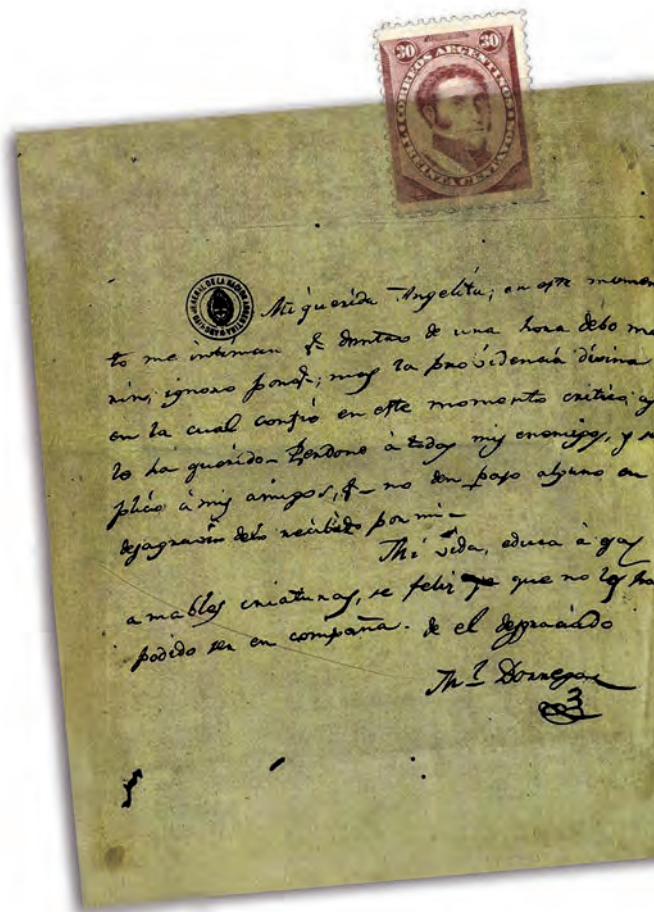 30 CORREOS ARGENTINOS 30
Mi querida Angelita; en este momen
to me intiman q.e dentro de una hora debo mo
rir, ignoro porq.e; mas la providencia divina
en la cual confio en este momento critico, asi
lo ha querido_ Perdono à todos mis enemigos, y su
plico à mis amigos, q.e no den paso alguno en
desagravio delo recibido por mi_
Mi vida, educa à esas
amables criaturas, se feliz ya que no lo has
podido ser en compaña. de el desgraciado
M.l Dorrego